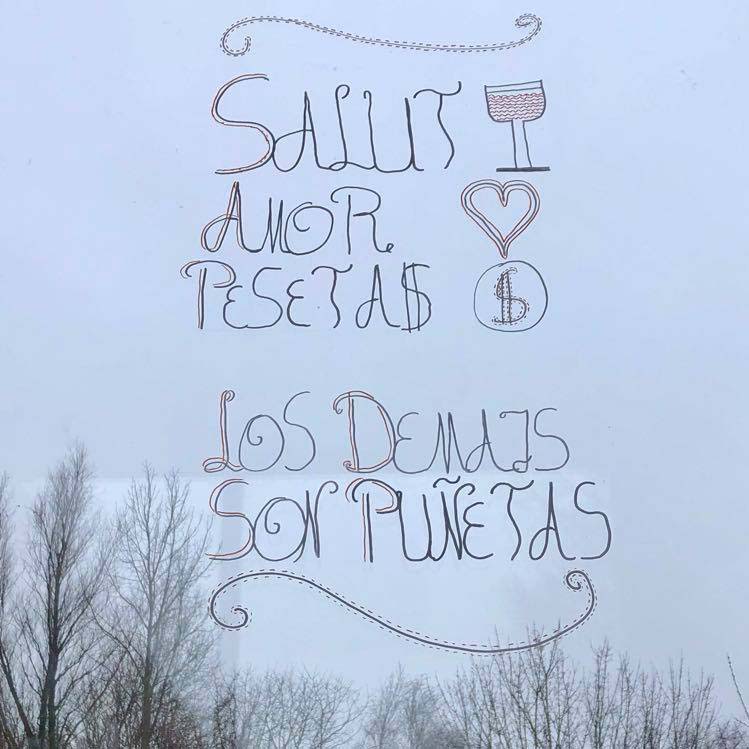 SALUT
AMOR
PESETA$ $
LOS DEMAIS
SON PUÑETAS